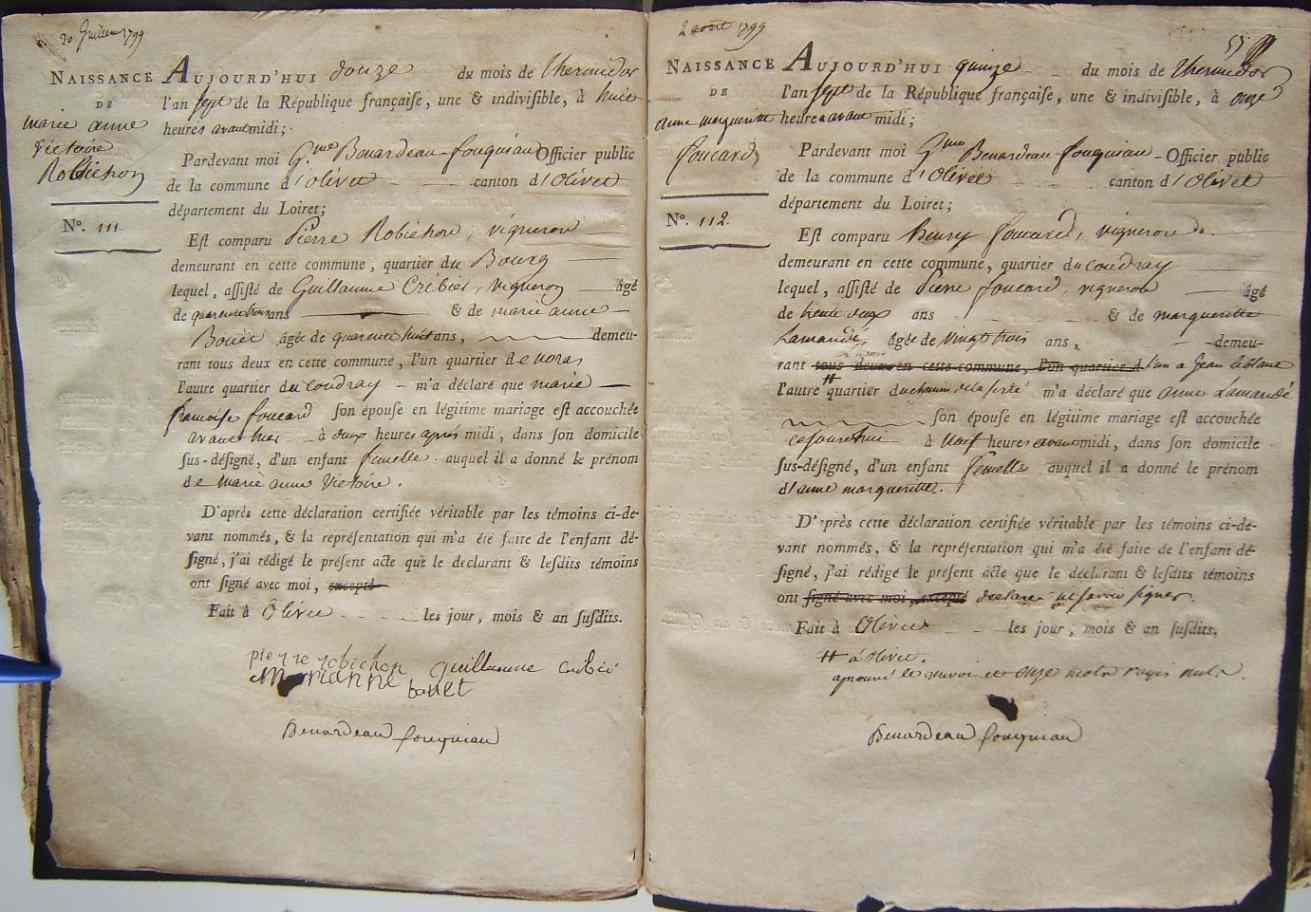 30 Juillet 1799
NAISSANCE
DE
marie anne
Victoire
Robichon
N°. 111.
AUJOURD'HUI douze du mois de thermidor
l'an sept de la République françaiſe, une & indiviſible, à huit
heures avant midi;
Pardevant moi G.me Benardeau-fouquiau Officier public
de la commune d'olivet canton d'Olivet
département du Loiret;
Eſt comparu Pierre Robichon, vigneron
demeurant en cette commune, quartier du Bourg
lequel, aſſiſté de Guillaume Crébier, vigneron âgé
de quarante ans & de marie anne
âgée de quarante huit ans, demeu-
rant tous deux en cette commune, l'un quartier de
l'autre quartier du coudray - m'a déclaré que marie
francoise foucard ſon épouſe en légitime mariage eſt accouchée
avant hier à deux heures après midi, dans ſon domicile
ſus-déſigné, d'un enfant femelle auquel il a donné le prénom
de marie anne victoire.
D'après cette déclaration certifiée véritable par les témoins ci-de-
vant nommés, & la repréſentation qui m'a été faite de l'enfant dé-
ſigné, j'ai rédigé le préſent acte que le déclarant & leſdits témoins
ont ſigné avec moi, excepté
Fait à Olivet les jour, mois & an ſuſdits.
pierre robichon guillaume
marianne
Benardeau fouquiau
2 août 1799
55
NAISSANCE
DE
anne marguerite
foucard
N°. 112.
AUJOURD'HUI quinze du mois de thermidor
l'an sept de la République françaiſe, une & indiviſible, à onze
heures avant midi;
Pardevant moi G.me Benardeau fouquiau - Officier public
de la commune d'Olivet canton d'Olivet
département du Loiret;
Eſt comparu henry foucard, vigneron
demeurant en cette commune, quartier du coudray
lequel, aſſiſté de Pierre foucard, vigneron âgé
de trente deux ans & de marguerite
Lamandé, âgée de vingt trois ans, demeu-
rant tous deux en cette commune, l'un quartier d l'un a
l'autre quartier m'a déclaré que anne Lamandé
ſon épouſe en légitime mariage eſt accouchée
cejourdhui à neuf heures avant midi, dans ſon domicile
ſus-déſigné, d'un enfant femelle auquel il a donné le prénom
d'anne marguerite.
D'après cette déclaration certifiée véritable par les témoins ci-de-
vant nommés, & la repréſentation qui m'a été faite de l'enfant dé-
ſigné, j'ai rédigé le préſent acte que le déclarant & leſdits témoins
ont ſigné avec moi, excepté declaré ne savoir signer.
Fait à Olivet les jour, mois & an ſuſdits.
# à olivet.
le renvoi et onze mots rayés nuls.
Benardeau fouquiau